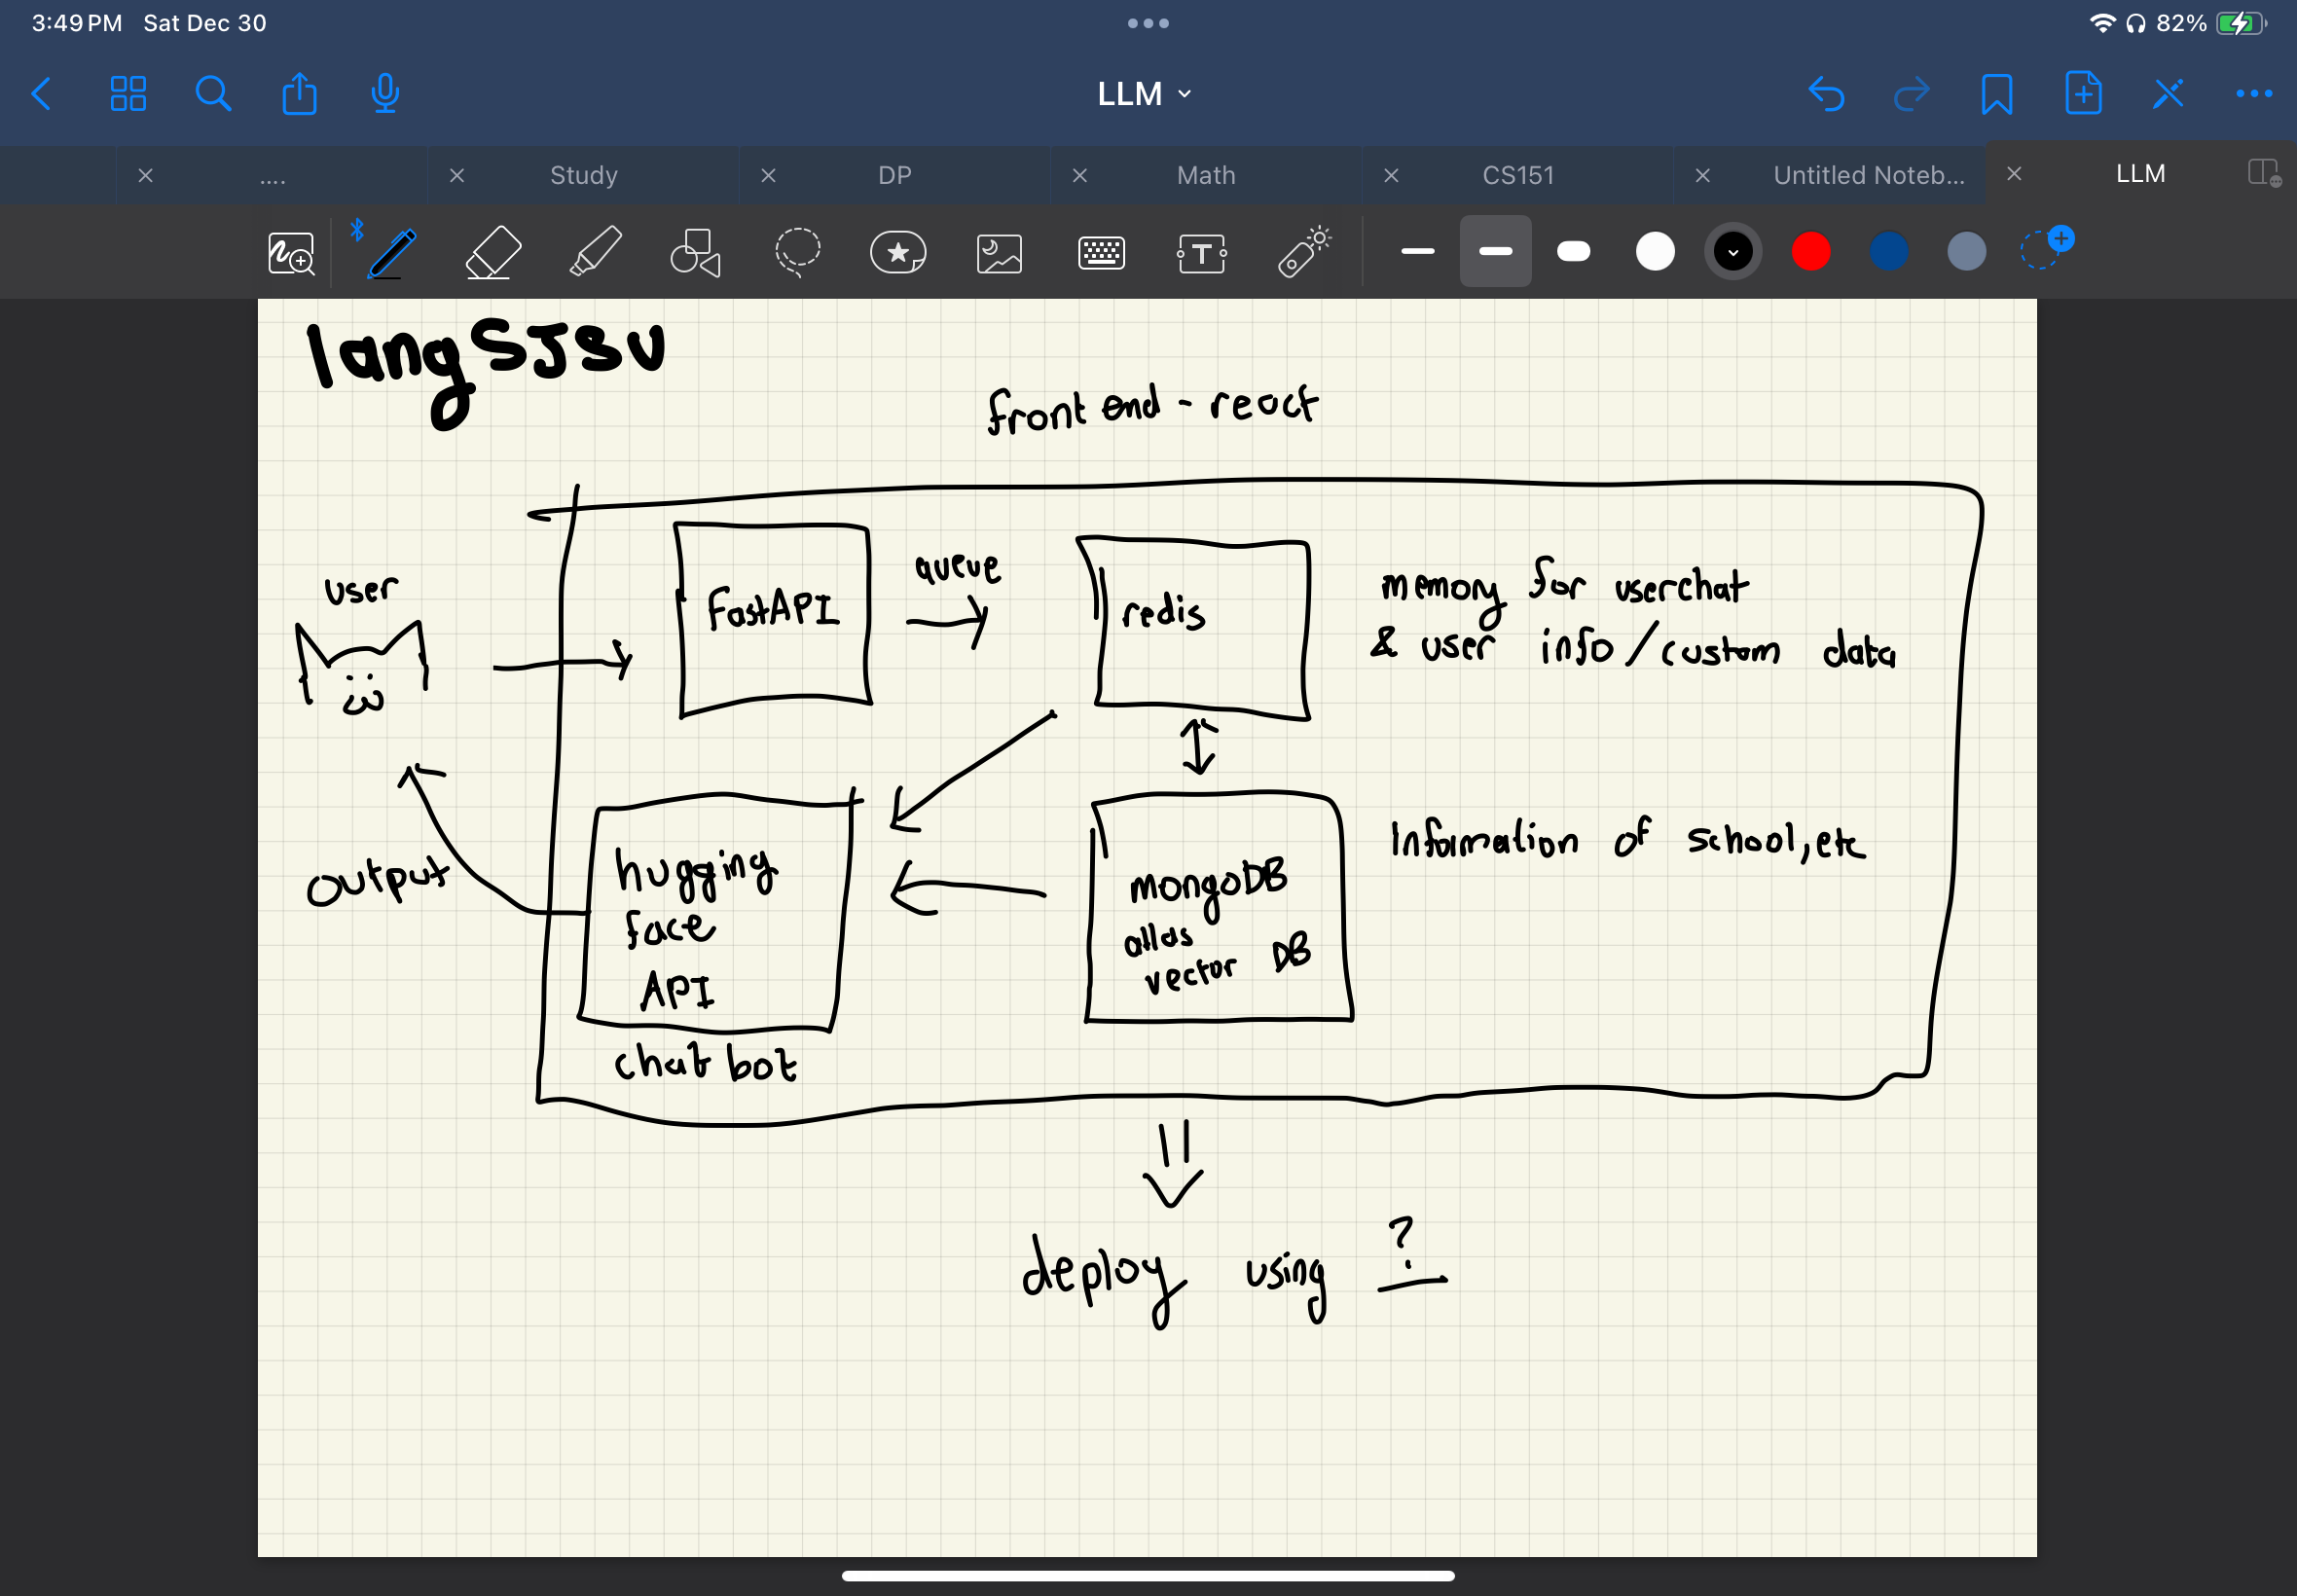 3:49 PM Sat Dec 30
82%
LLM
....
Study
DP
Math
CS151
Untitled Noteb...
LLM
T
langSJSU
front end - react
user
fastAPI
queue
redis
memory for userchat
& user info/custom data
output
hugging
face
API
chatbot
mongoDB
atlas
vector DB
information of school, etc
deploy using ?